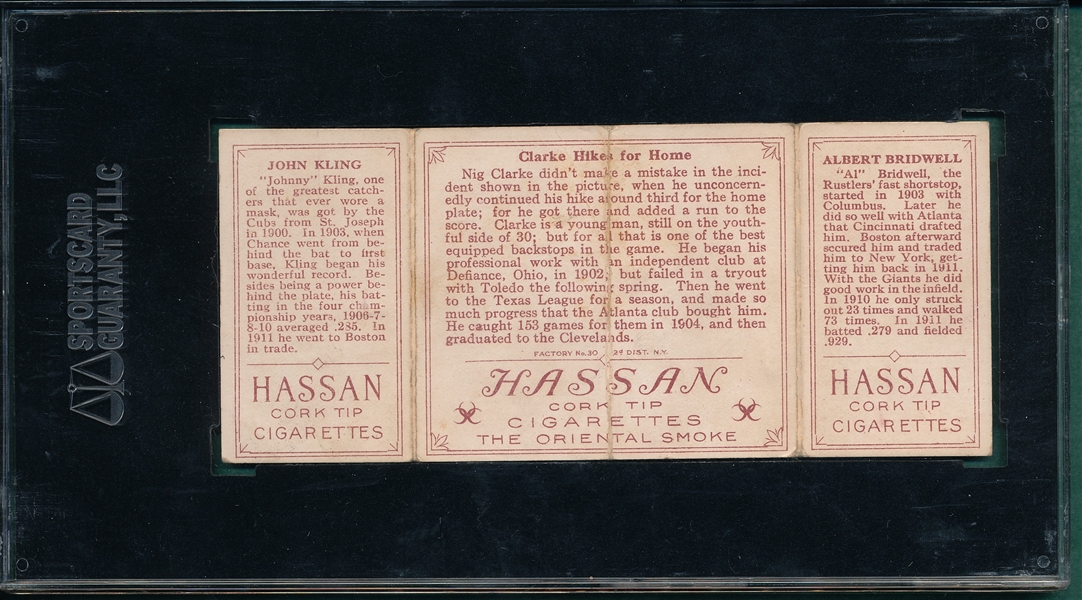 SPORTSCARD
GUARANTY, LLC
JOHN KLING
"Johnny" Kling, one
of the greatest catch-
ers that ever wore a
mask, was got by the
Cubs from St. Joseph
in 1900. In 1903, when
Chance went from be-
hind the bat to first
base, Kling began his
wonderful record. Be-
sides being a power be-
hind the plate, his bat-
ting in the four cham-
pionship years, 1906-7-
8-10 averaged .285. In
1911 he went to Boston
in trade.
HASSAN
CORK TIP
CIGARETTES
Clarke Hikes for Home
Nig Clarke didn't make a mistake in the inci-
dent shown in the picture, when he unconcern-
edly continued his hike around third for the home
plate; for he got there and added a run to the
score. Clarke is a young man, still on the youth-
ful side of 30; but for all that is one of the best
equipped backstops in the game. He began his
professional work with an independent club at
Defiance, Ohio, in 1902; but failed in a tryout
with Toledo the following spring. Then he went
to the Texas League for a season, and made so
much progress that the Atlanta club bought him.
He caught 153 games for them in 1904, and then
graduated to the Clevelands.
FACTORY No. 30 2d DIST. N.Y.
HASSAN
CORK TIP
CIGARETTES
THE ORIENTAL SMOKE
ALBERT BRIDWELL
"Al" Bridwell, the
Rustlers' fast shortstop,
started in 1903 with
Columbus. Later he
did so well with Atlanta
that Cincinnati drafted
him. Boston afterward
secured him and traded
him to New York, get-
ting him back in 1911.
With the Giants he did
good work in the infield.
In 1910 he only struck
out 23 times and walked
73 times. In 1911 he
batted .279 and fielded
.929.
HASSAN
CORK TIP
CIGARETTES